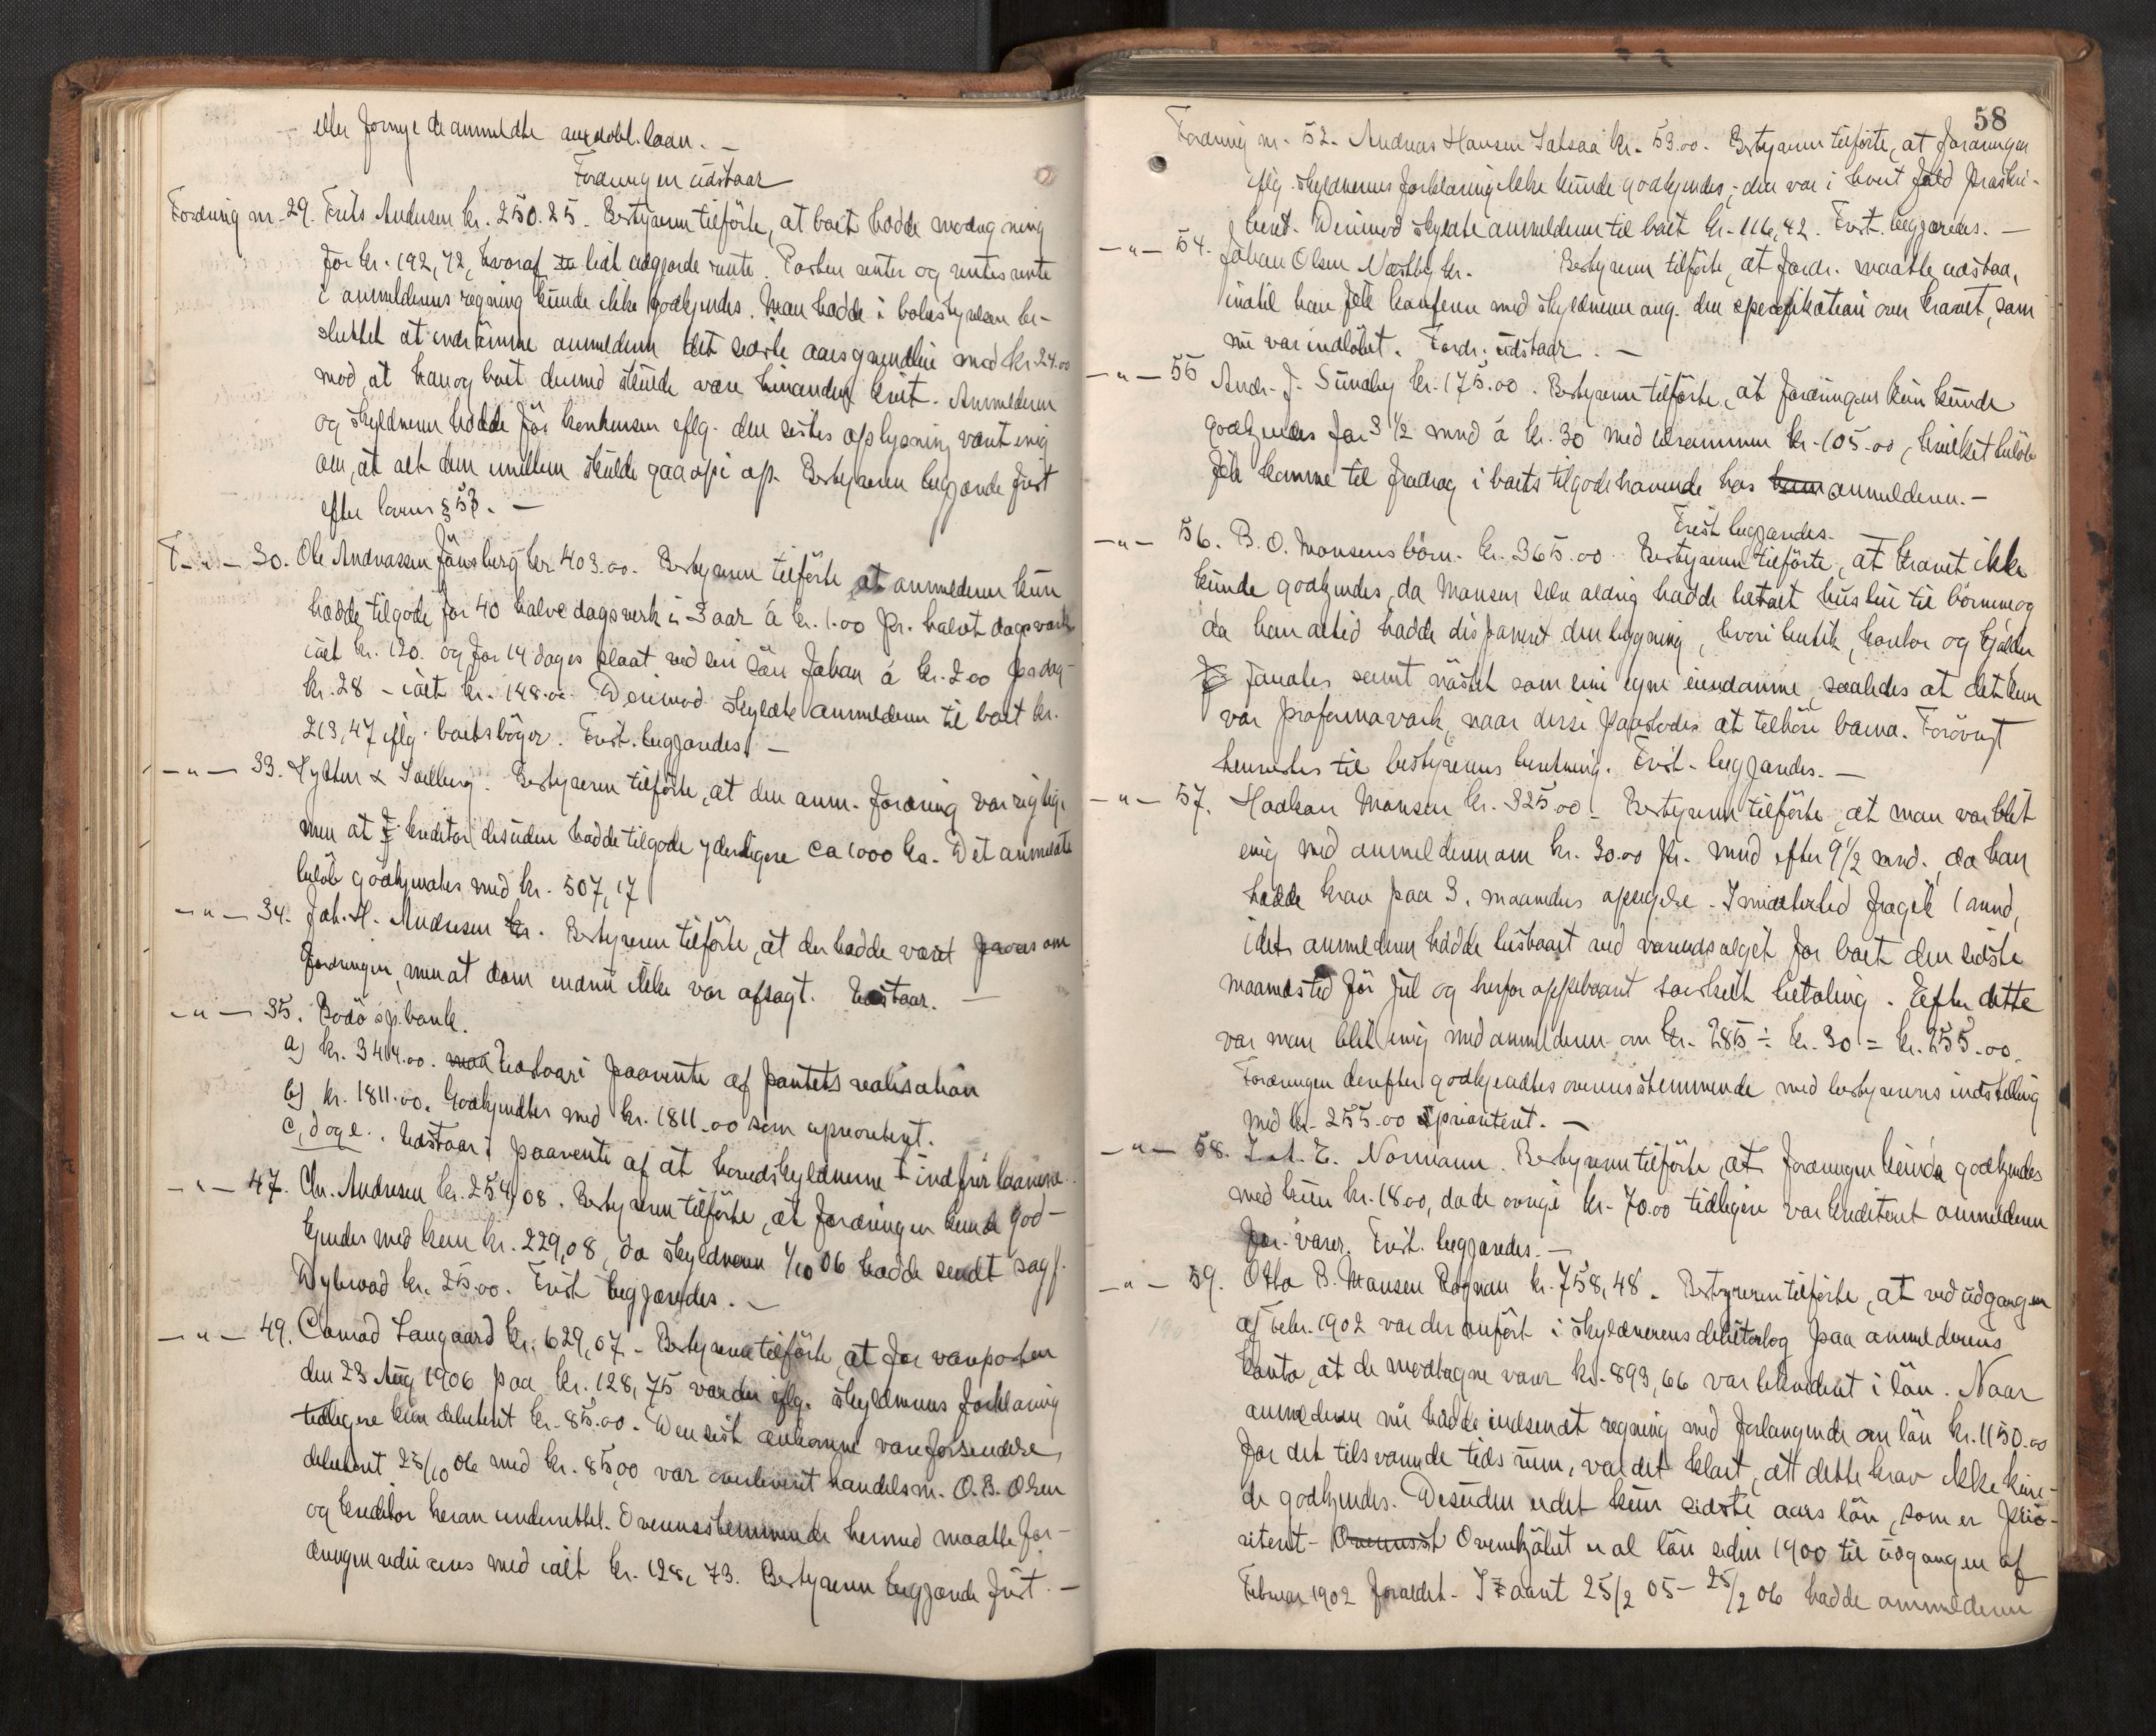 eller fornye de anmeldte laan. —
Fordringen udstaar
Fordring nr. 29. Frits Andersen kr. 250.25. Bestyreren tilførte, at boet hadde modregning
for kr. 192,72, hvoraf lidt udgjorde rente. Posten renter og rentes rente
i anmelderens regning kunde ikke godkjendes. Man hadde i bobestyrelsen be-
sluttet at indrømme anmelderen det sidste aars grundleie med kr 24.00
mod, at han og boet dermed skulde være hinanden kvit. Anmelderen
og skyldneren hadde før konkursen eflg. den sistes oplysning været enig
om, at alt dem imellem skulde gaa op i op. Bestyreren begjærede frist
efter lovens § 53. —
F — " — 30. Ole Andreassen kr. 403.00. Bestyreren tilførte at anmelderen kun
hadde tilgode for 40 halve dagsverk i 3 aar á kr. 1.00 pr. halvt dagsverk
ialt kr. 120. og for 14 dages slaat ved sin søn Johan á kr. 2.00 pr dag -
kr. 28 - ialt kr. 148.00. Derimod skyldte anmelderen til boet kr.
213,47 eflg. boets bøger. Frist begjæredes. —
— " — 33. & Solberg. Bestyreren tilførte, at den anm. fordring var rigtig,
men at kreditor desuden hadde tilgode yderligere ca 1000 kr. Det anmeldte
beløb godkjendtes med kr. 507,17
— " — 34. Joh. H. Andresen kr. Bestyreren tilførte, at der hadde været proces om
fordringen, men at dom endnu ikke var afsagt. Udstaar. —
— " — 35. Bodø sp.bank.
a) kr. 3444.00. maa Udstaar i paavente af pantets realisation
b) kr. 1811.00. Godkjendtes med kr. 1811.00 som uprioritert.
c, d og e. Udstaar i paavente af at hovedskyldnerne indfrir laanene.
— " — 47. Chr. Andresen kr. 254,08. Bestyreren tilførte, at fordringen kunde god-
kjendes med kun kr. 229,08, da skyldneren 1/10 06 hadde sendt sagf.
Dybwad kr. 25.00. Frist begjæredes. —
— " — 49. Conrad Langaard kr. 629,07 - Bestyreren tilførte, at for vareposten
den 23 Aug 1906 paa kr. 128,75 var der eflg. skyldnerens forklaring
tidligere kun debitert kr. 85.00. Den sist ankomne vareforsendelse,
debitert 25/10 06 med kr. 85,00 var overleveret handelsm. O. B. Olsen
og kreditor herom underrettet. Overensstemmende hermed maatte for-
dringen reduceres med ialt kr. 128,73. Bestyreren begjærede frist. —
58
Fordring nr. 52. Andreas Hansen Saksaa kr. 53.00. Bestyreren tilførte, at fordringen
eflg. skyldnerens forklaring ikke kunde godkjendes; den var i hvert fald præskri-
beret. Derimod skyldte anmelderen til boet kr. 116,42. Frist begjæredes. —
— " — 54. Johan Olsen Næstby kr. Bestyreren tilførte, at fordr. maatte udstaa,
indtil han fik konferere med skyldneren ang. den spesifikation over kravet, som
nu var indløbet. Fordr. udstaar. —
— " — 55 Andr. J. Sundby kr. 175.00. Bestyreren tilførte, at fordringen kun kunde
godkjendes for 3 1/2 mnd á kr. 30 med tilsammen kr. 105.00, hvilket beløb
fik komme til fradrag i boets tilgodehavende hos ham anmelderen. —
Frist begjæredes. —
— " — 56. B. O. Monsens børn. kr. 365.00. Bestyreren tilførte, at kravet ikke
kunde godkjendes, da Monsen selv aldrig hadde betalt husleie til børnene og
da han altid hadde disponert den bygning, hvori butik, kontor og kjælder
fandtes samt nøstet som sine egne eiendomme, saaledes at det kun
var proformaværk, naar disse paastodes at tilhøre barna. Forøvrigt
henvistes til bestyrerens beretning. Frist begjæredes. —
— " — 57. Haakon Monsen kr. 325.00. Bestyreren tilførte, at man var blit
enig med anmelderen om kr. 30.00 pr. mnd efter 9 1/2 mnd, da han
hadde krav paa 3. maaneders opsigelse. Imidlertid fragik 1 mnd,
idet anmelderen hadde bistaaet ved vareudsalget for boet den sidste
maanedstid før jul og herfor oppebaaret særskilt betaling. Efter dette
var man blit enig med anmelderen om kr. 285 ÷ kr. 30 = kr. 255.00.
Fordringen derefter godkjendtes overensstemmende med bestyrerens indstilling
med kr. 255.00 prioritert. —
— " — 58. Normann. Bestyreren tilførte, at fordringen kunde godkjendes
med kun kr. 18.00, da de øvrige kr. 70.00 tidligere var krediteret anmelderen
for varer. Frist begjæredes. —
— " — 59. Otto B. Monsen Rognan kr. 758,48. Bestyreren tilførte, at ved udgangen
af Febr. 1902 var der anført i skyldnerens debitorbog paa anmelderens
konto, at de modtagne varer kr. 893,66 var likvidert i løn. Naar
anmelderen nu hadde indsendt regning med forlangende om løn kr. 1150.00
for det tilsvarende tidsrum, var det klart, at dette krav ikke kun-
de godkjendes. Desuden er det kun sidste aars løn, som er prio-
ritert - Overensst Ovenikjøbet er al løn siden 1900 til udgangen af
Februar 1902 forældet. I aaret 25/2 05 - 25/2 06 hadde anmelderen